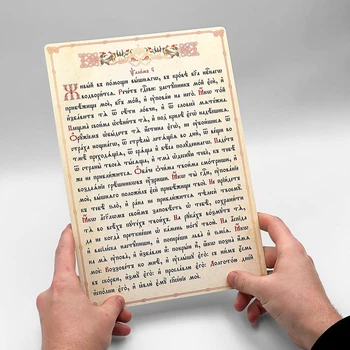 Ѱаломъ ч҃
Живый въ помощи вышнѧгѡ, въ кровѣ бг҃а нб҃снагѡ
водворитсѧ. Речетъ гдⷭ҇еви: застꙋпникъ мой єси и҆
прибѣжище моє, бг҃ъ мой, и҆ ᲂу҆поваю на него. Ꙗкѡ той
избавитъ тѧ ѿ сѣти ловчи, и҆ ѿ словесе мѧтежна.
Плещма своима ѡ҆сѣнитъ тѧ, и҆ под крилѣ є҆гѡ̀ надѣешисѧ:
Ѻ҆рꙋжїемъ ѡ҆быдетъ тѧ и҆стина є҆гѡ̀, не ᲂу҆боишисѧ ѿ
страха нощнагѡ, ѿ стрѣлы летѧщїѧ во дни, ѿ вещи во
тмѣ преходѧщїѧ, ѿ срѧща и҆ бѣса полꙋденнагѡ. Падетъ
ѿ страны твоеѧ тысѧща, и҆ тма ѡ҆деснꙋю тебе, къ тебѣ
же не приближитсѧ. Ѻ҆баче ѻ҆чима твоима смотриши, и҆
воздаѧнїе грѣшникѡвъ ᲂу҆зриши. Ꙗкѡ ты гдⷭ҇и, ᲂу҆пованїе
мое, вышнѧго положилъ є҆си прибѣжище твое. Не прїидетъ
къ тебѣ ѕло, и҆ рана не приближитсѧ тѣлеси твоемꙋ.
Ꙗкѡ а҆гг҃лѡмъ своимъ заповѣсть ѡ҆ тебѣ, сохранити
тѧ во всѣхъ пꙋтехъ твоихъ. На рꙋкахъ возмꙋтъ тѧ
да не когда преткнеши ѡ҆ камень ногꙋ твою. На а҆спїда
и҆ васїлїска настꙋпиши, и҆ попереши льва и҆ змїѧ. Ꙗкѡ
на мѧ ᲂу҆пова, и҆ и҆збавлю и҆: покрыю и҆, ꙗкѡ позна и҆мѧ
мое. Воззоветъ ко мнѣ, и҆ ᲂу҆слышꙋ є҆го: съ нимъ є҆смь
въ скорби, и҆змꙋ є҆го, и҆ прославлю є҆го: Долготою дній
и҆сполню є҆го, и҆ ꙗвлю є҆мꙋ сп҃сенїе мое.